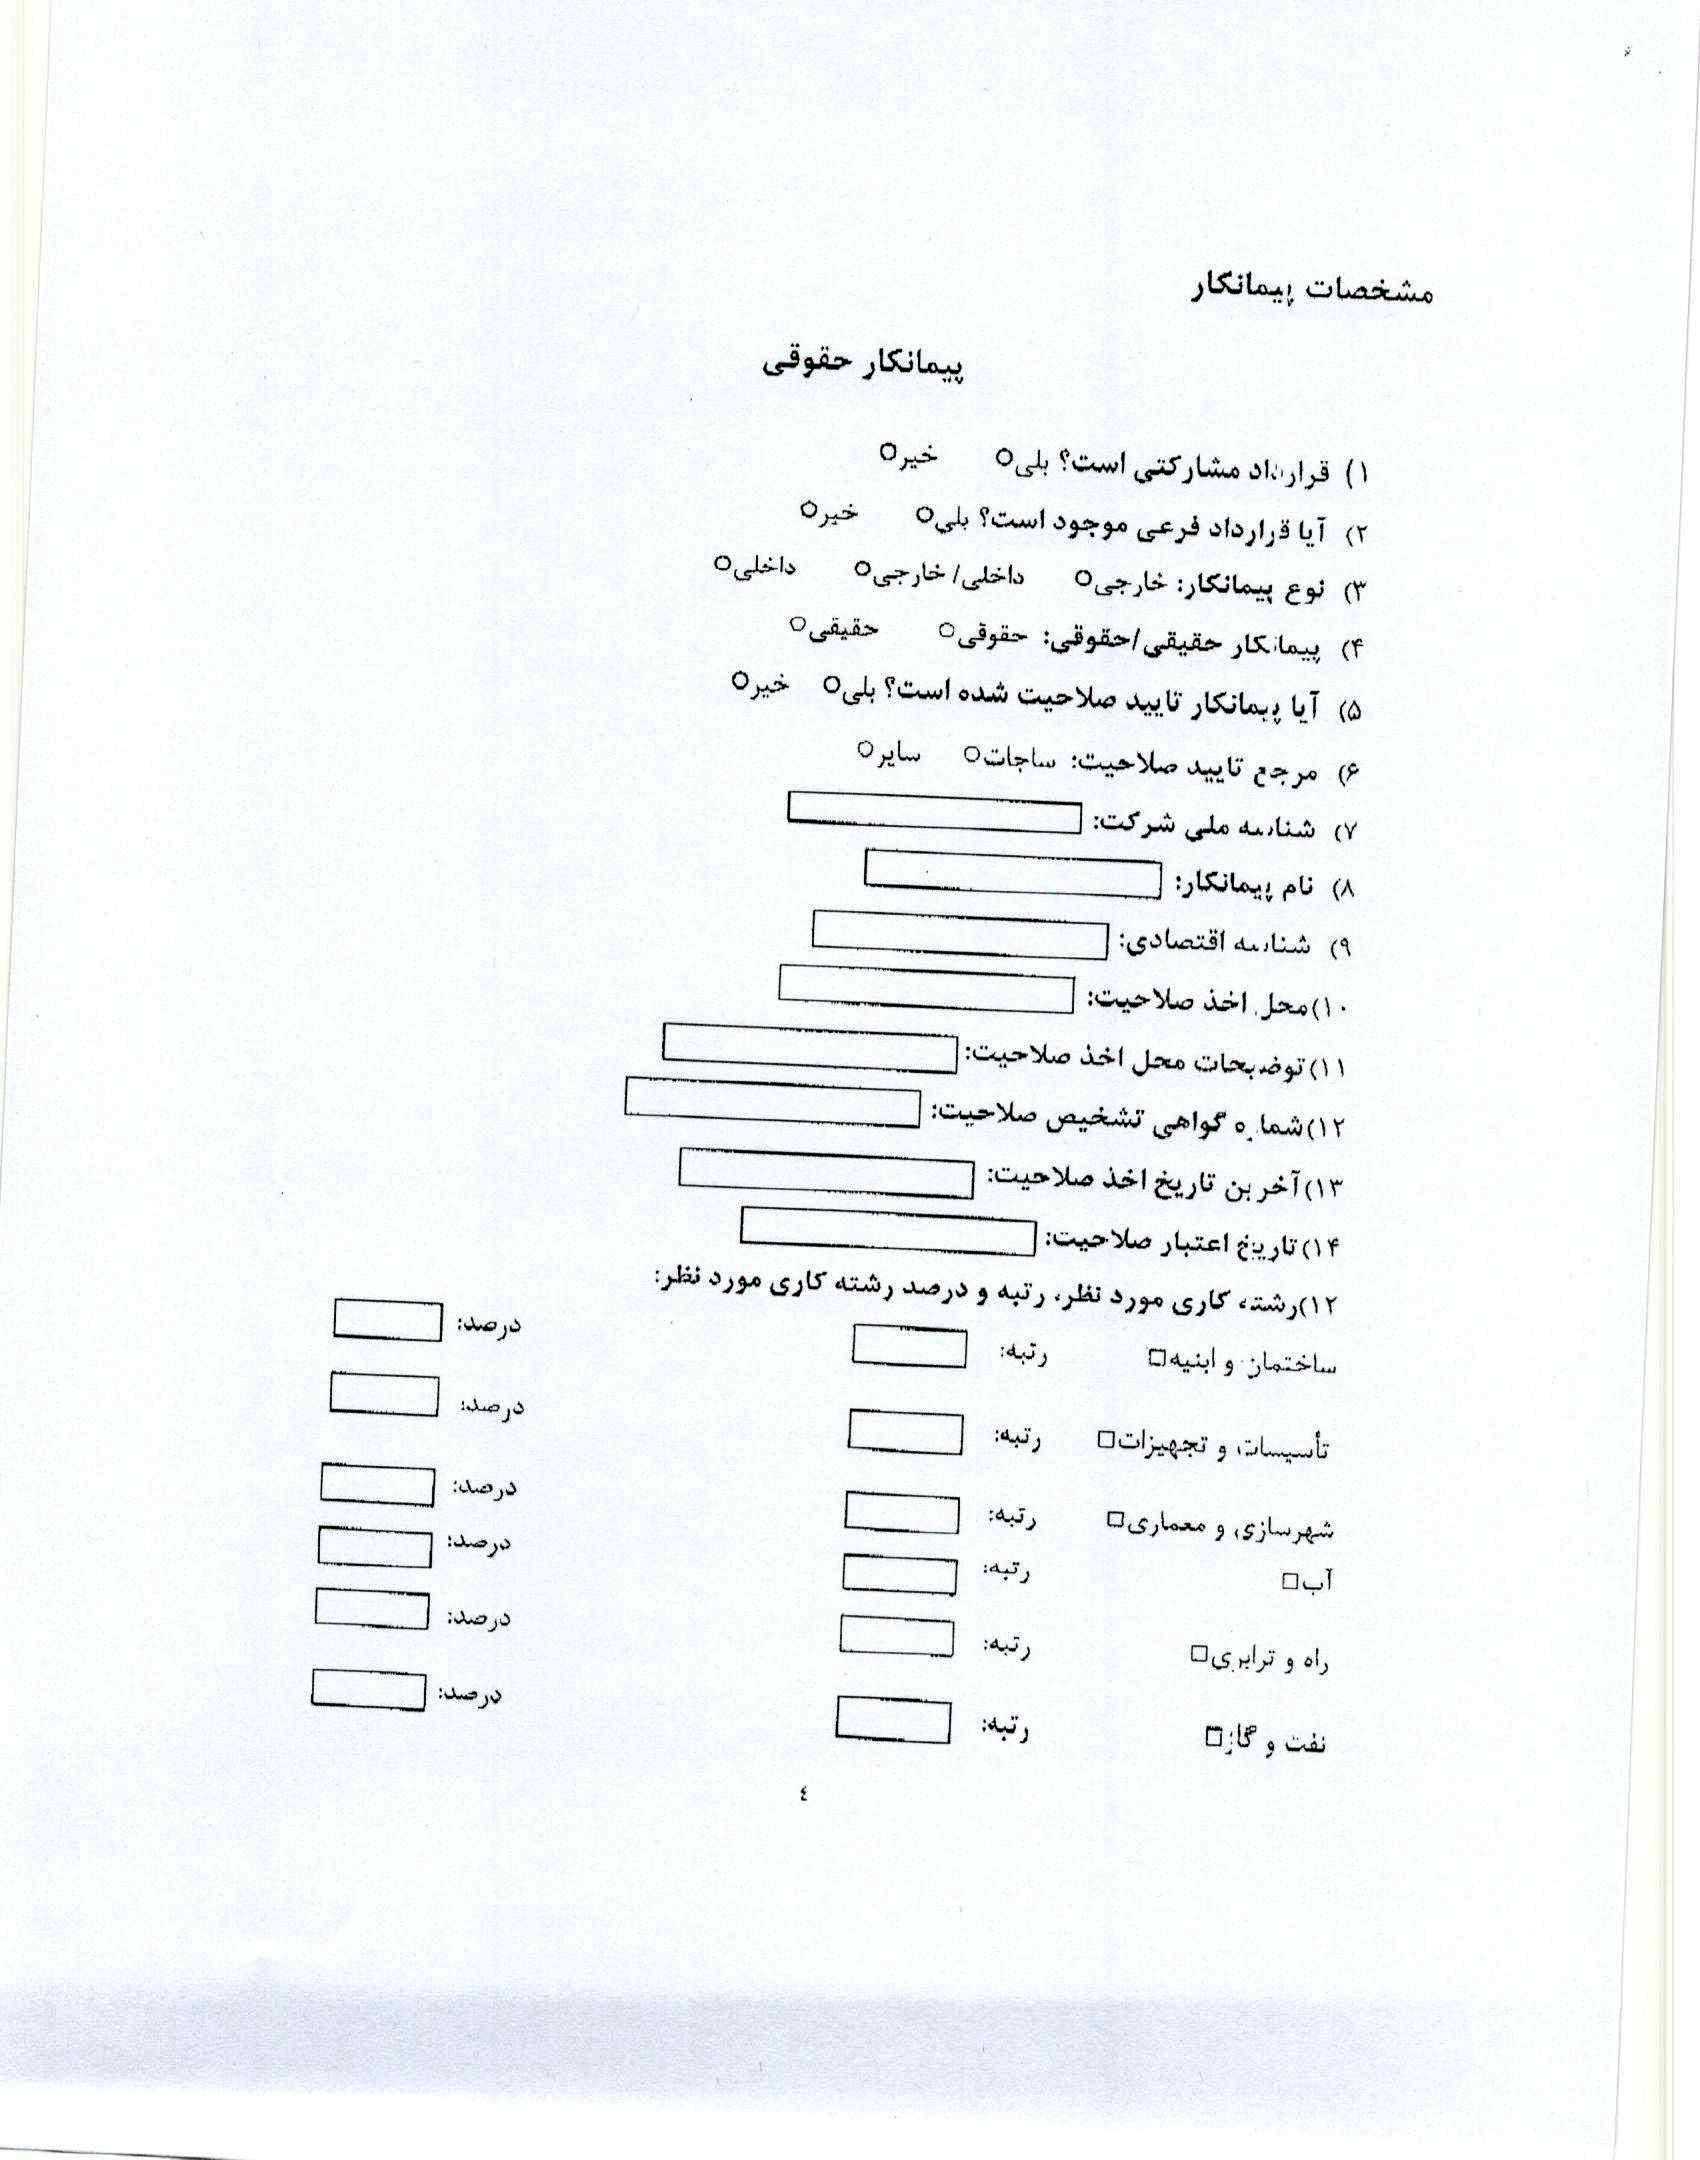 مشخصات پیمانکار
پیمانکار حقوقی
۱) قرارداد مشارکتی است؟ بلی○ خیر○
۲) آیا قرارداد فرعی موجود است؟ بلی○ خیر○
۳) نوع پیمانکار: خارجی○ داخلی/خارجی○ داخلی○
۴) پیمانکار حقیقی/حقوقی: حقوقی○ حقیقی○
۵) آیا پیمانکار تایید صلاحیت شده است؟ بلی○ خیر○
۶) مرجع تایید صلاحیت: ساجات○ سایر○
۷) شناسه ملی شرکت:
۸) نام پیمانکار:
۹) شناسه اقتصادی:
۱۰)محل اخذ صلاحیت:
۱۱)توضیحات محل اخذ صلاحیت:
۱۲)شماره گواهی تشخیص صلاحیت:
۱۳)آخرین تاریخ اخذ صلاحیت:
۱۴)تاریخ اعتبار صلاحیت:
۱۲)رشته کاری مورد نظر، رتبه و درصد رشته کاری مورد نظر:
ساختمان و ابنیه□ رتبه: درصد:
تأسیسات و تجهیزات□ رتبه: درصد:
شهرسازی و معماری□ رتبه: درصد:
آب□ رتبه: درصد:
راه و ترابری□ رتبه: درصد:
نفت و گاز□ رتبه: درصد:
٤